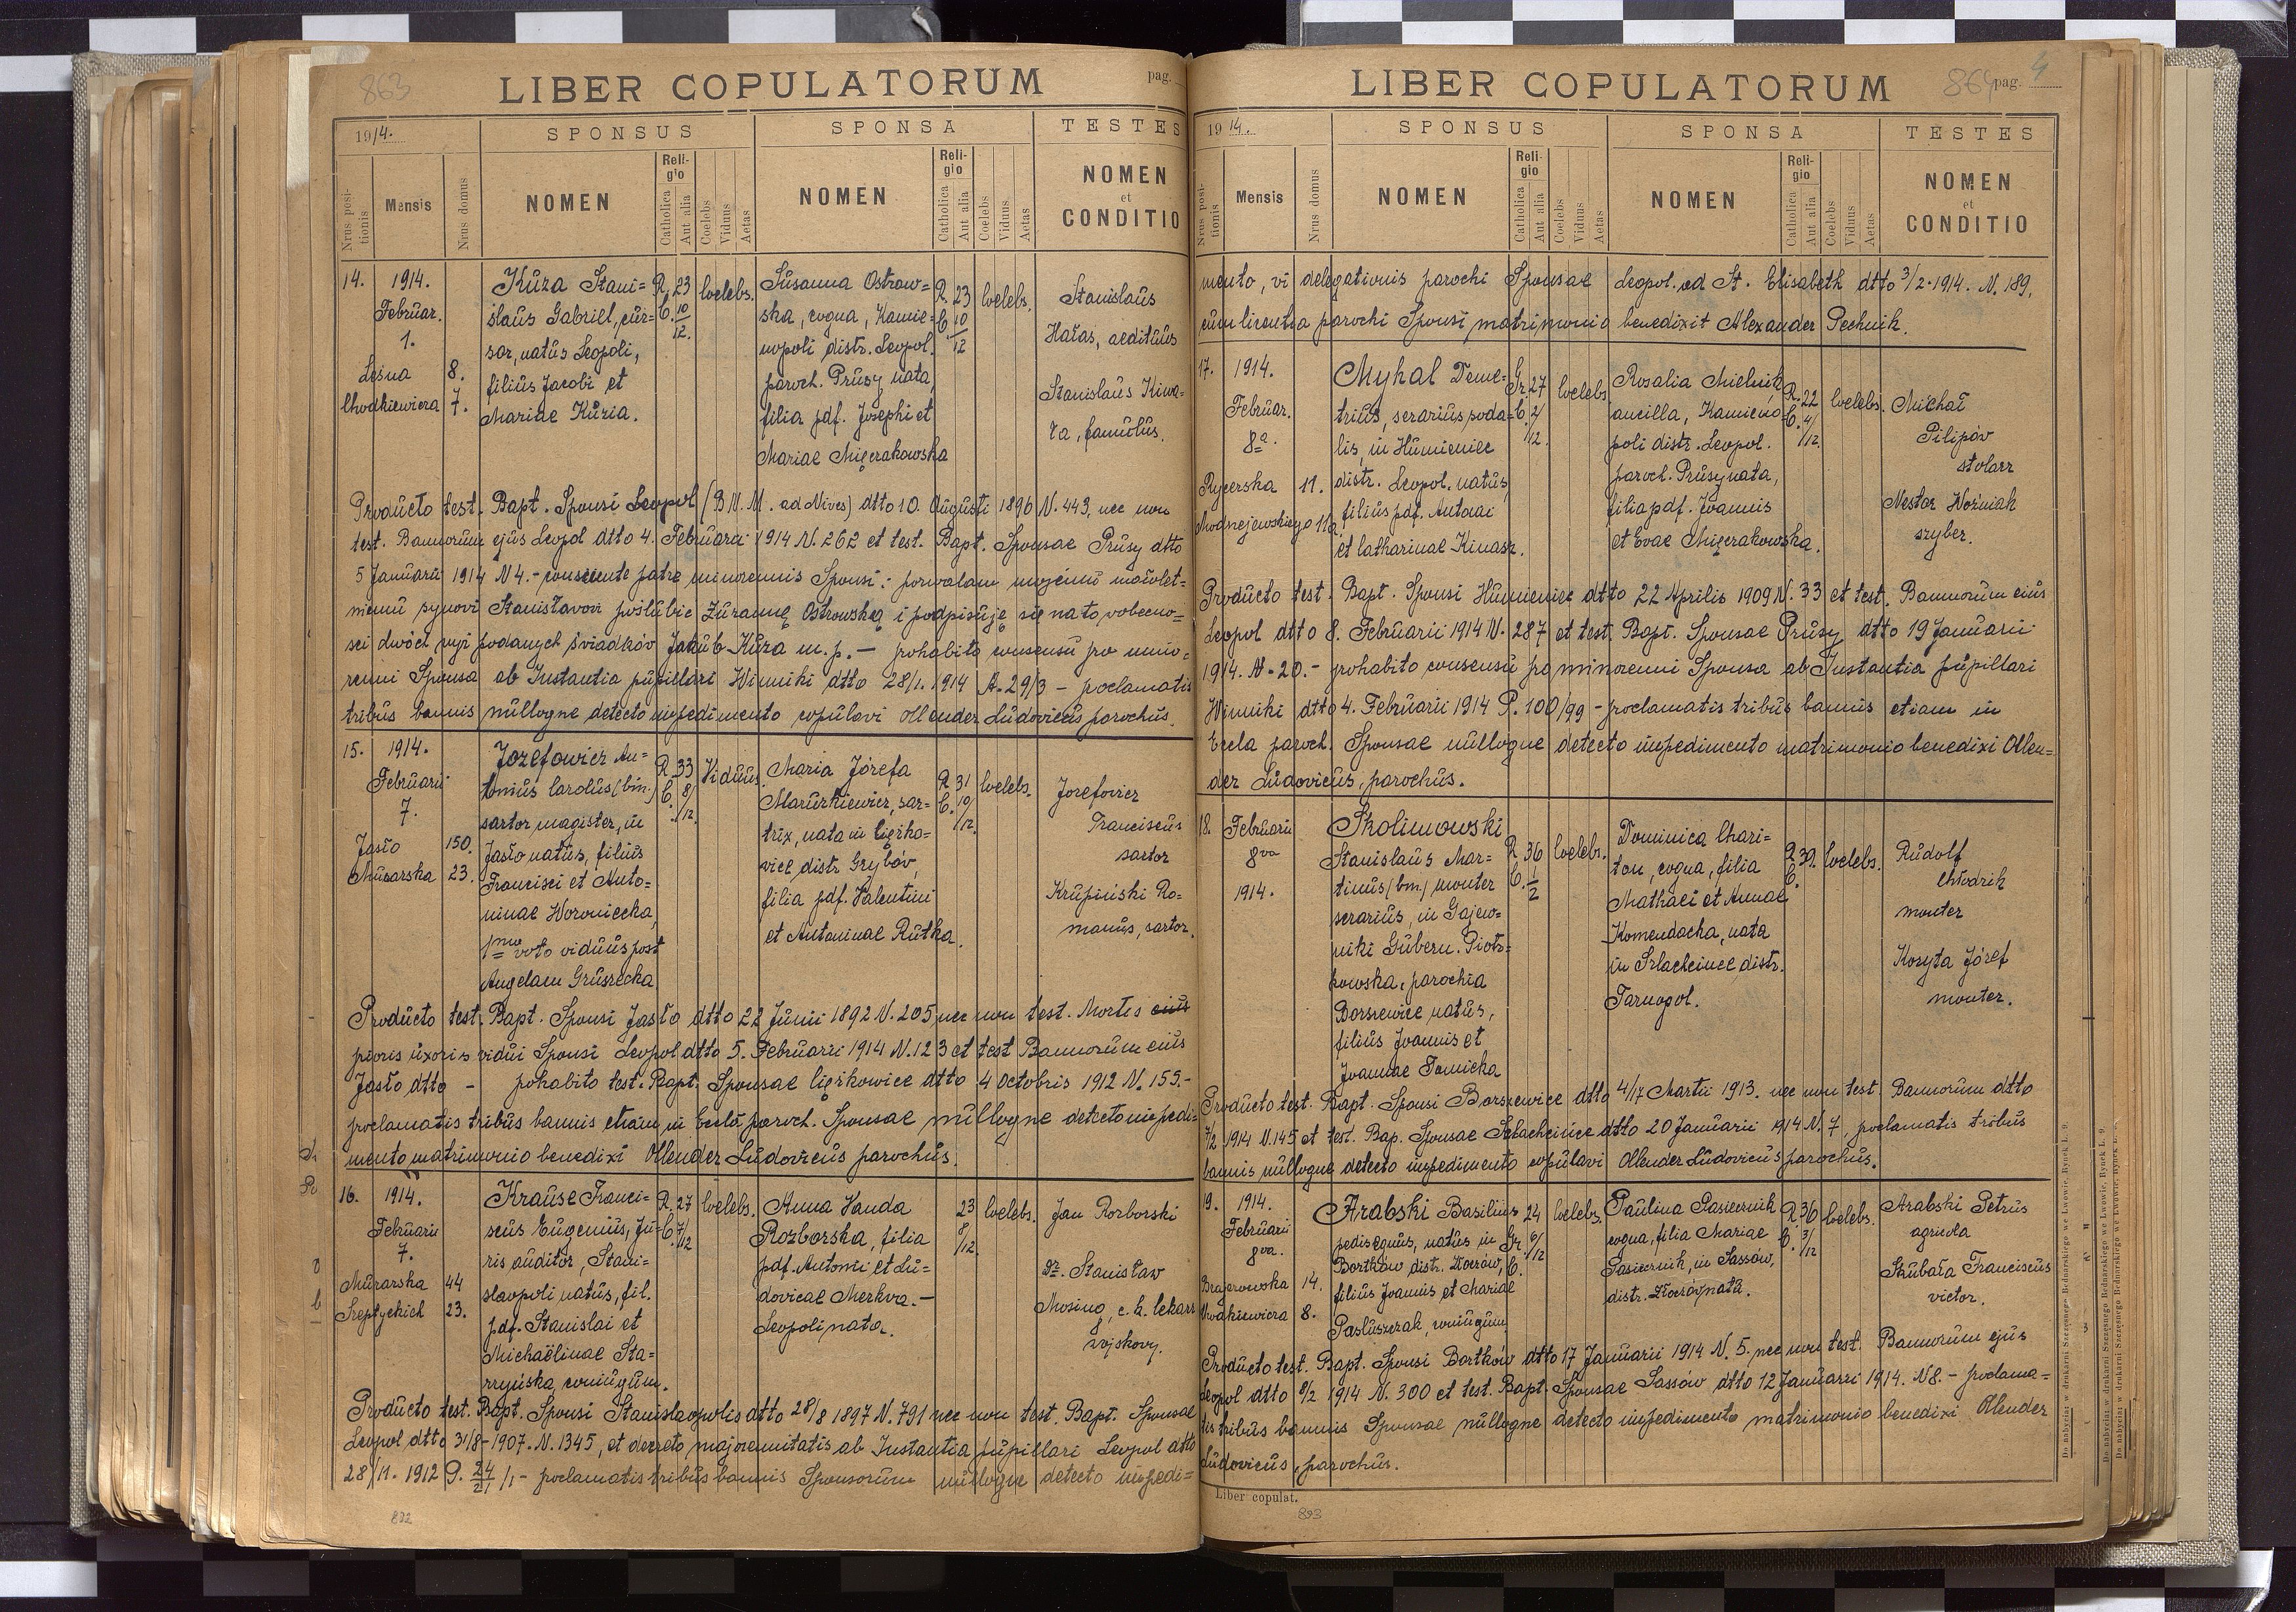 863
LIBER COPULATORUM
pag.
1914.
SPONSUS
SPONSA
TESTES
Nrus positionis
Mensis
Nrus domus
NOMEN
Religio
Catholica
Aut alia
Coelebs
Viduus
Aetas
NOMEN
Religio
Catholica
Aut alia
Coelebs
Viduus
Aetas
NOMEN
et
CONDITIO
14.
1914.
Februar.
1.
Leśna 8.
Chodkiewicza 7.
Kuza Stani=
slaus Gabriel, cur=
sor, natus Leopoli,
filius Jacobi et
Mariae Kuzia.
R. C. 23 10/12 Coelebs.
Susanna Ostrow=
ska, coqua, Kamie=
nopoli distr. Leopol.
paroch. Prusy nata
filia pdf. Josephi et
Mariae Mięrakowska
R. C. 23 10/12 Coelebs.
Stanislaus
Hałas, aedituus
Stanislaus Kiwa=
ła, famulus.
Producto test. Bapt. Sponsi Leopol (B.V.M. ad Nives) dtto 10. Augusti 1896 N. 443, nec non
test. Bannorum ejus Leopol dtto 4. Februarii 1914 N. 262 et test. Bapt. Sponsae Prusy dtto
5 Januarii 1914 N 4. - consente patre minorennis Sponsi: pozwalam mojemu małolet=
niemu synowi Stanisławowi poślubić Zuzannę Ostrowską i podpisuję się na to w obecno=
ści dwóch wyż podanych świadków Jakub Kuza m. p. — prohabito consensu pro mino=
renni Sponsa ab Instantia pupillari Winniki dtto 28/1. 1914 A. 29/3 - proclamatis
tribus bannis nulloque detecto impedimento copulavi Ollender Ludovicus parochus.
15.
1914.
Februarii
7.
Jasło 150.
Murarska 23.
Jozefowicz An=
tonius Carolus (bm.)
sartor magister, in
Jasło natus, filius
Francisci et Anto=
ninae Woroniecka,
1mo voto viduus post
Angelam Gruszecka
R. C. 33 8/12. Viduus.
Maria Józefa
Mazurkiewicz, sar=
trix, nata in Ciężko=
wice distr. Grybów,
filia pdf. Valentini
et Antoninae Rutka.
R. C. 31 10/12. Coelebs.
Jozefowicz
Franciscus
sartor
Krupiński Ro=
manus, sartor.
Producto test. Bapt. Sponsi Jasło dtto 22 Junii 1892 N. 205 nec non test. Mortis eius
prioris uxoris vidui Sponsi Leopol dtto 5. Februarii 1914 N. 123 et test Bannorum eius
Jasło dtto - prohabito test. Bapt. Sponsae Ciężkowice dtto 4 Octobris 1912 N. 159.-
proclamatis tribus bannis etiam in Eccla paroch. Sponsae nulloque detecto impedi=
mento matrimonio benedixi Ollender Ludovicus parochus.
16.
1914.
Februarii
7.
Murarska 44
Szeptyckich 23.
Krause Franci=
scus Eugenius, Ju=
ris auditor, Stani=
slaopoli natus, fil.
pdf. Stanislai et
Michaëlinae Sta=
rzyńska, coniugum.
R. C. 27 7/12 Coelebs.
Anna Vanda
Rozborska, filia
pdf. Antonii et Lu=
dovicae Merkva. —
Leopoli nata.
23 8/12. Coelebs.
Jan Rozborski
Dr. Stanisław
Mosing, c. k. lekarz
wojskowy.
Producto test. Bapt. Sponsi Stanislaopolis dtto 28/8 1897 N. 791 nec non test. Bapt. Sponsae
Leopol dtto 31/8 - 1907. N. 1345, et decreto majorennitatis ab Instantia pupillari Leopol dtto
28/11. 1912 P. 24/21 /1 - proclamatis tribus bannis Sponsorum nulloque detecto impedi=
892
LIBER COPULATORUM
864 pag. 4
1914.
SPONSUS
SPONSA
TESTES
Nrus positionis
Mensis
Nrus domus
NOMEN
Religio
Catholica
Aut alia
Coelebs
Viduus
Aetas
NOMEN
Religio
Catholica
Aut alia
Coelebs
Viduus
Aetas
NOMEN
et
CONDITIO
mento, vi delegationis parochi Sponsae Leopol. ad St. Elisabeth dtto 3/2. 1914. N. 189,
cum licentia parochi Sponsi matrimonio benedixit Alexander Pechnik.
17.
1914.
Februar.
8a.
Rycerska 11.
Modrzejewskiego 11a
Mykal Deme=
trius, serarius soda=
lis, in Humieniec
distr. Leopol. natus,
filius pdf. Antonii
et Catharinae Kinasz.
Gr. C. 27 2/12. Coelebs.
Rosalia Mielnik
ancilla, Kamieno
poli distr. Leopol.
paroch. Prusy nata,
filia pdf. Joannis
et Evae Mięrakowska.
R. C. 22 4/12. Coelebs.
Michał
Pilipów
stolarz
Nestor Woźniak
szyber.
Producto test. Bapt. Sponsi Humieniec dtto 22 Aprilis 1909 N. 33 et test. Bannorum eius
Leopol dtto 8. Februarii 1914 N. 287 et test. Bapt. Sponsae Prusy dtto 19 Januarii
1914. N. 20. - prohabito consensu pro minorenni Sponsa ab Instantia pupillari
Winniki dtto 4. Februarii 1914 P. 100/99 - proclamatis tribus bannis etiam in
Eccla paroch. Sponsae nulloque detecto impedimento matrimonio benedixi Ollen=
der Ludovicus, parochus.
18.
Februarii
8va
1914.
Skolimowski
Stanislaus Mar=
tinus (bm.) monter
serarius, in Gajew=
niki Gubern. Piotr=
kowska, parochia
Borszewice natus,
filius Joannis et
Joannae Tomicka
R. C. 36 1/2 Coelebs.
Dominica Chari=
ton, coqua, filia
Mathaei et Annae
Komendacka, nata
in Szlachcince distr.
Tarnopol.
R. C. 39. Coelebs.
Rudolf
Chłodrik
monter
Kosyta Józef
monter.
Producto test. Bapt. Sponsi Borszewice dtto 4/17 Martii 1913. nec non test. Bannorum dtto
7/2 1914 N. 145 et test. Bap. Sponsae Szlachcince dtto 20 Januarii 1914 N. 7, proclamatis tribus
bannis nulloque detecto impedimento copulavi Ollender Ludovicus parochus.
19.
1914.
Februarii
8va.
Brajerowska 14.
Chodkiewicza 8.
Arabski Basilius
pedisequus, natus in
Bortków distr. Złoczów,
filius Joannis et Mariae
Pastuszczak, coniugum
24 6/12 Gr. C. Coelebs.
Paulina Pasiecznik
coqua, filia Mariae
Pasiecznik, in Sassów,
distr. Złoczów nata.
R. C. 36 3/12 Coelebs.
Arabski Petrus
agricola
Skubała Franciscus
victor.
Producto test. Bapt. Sponsi Bortków dtto 17 Januarii 1914 N. 5. nec non test. Bannorum ejus
Leopol dtto 8/2 1914 N. 300 et test. Bapt. Sponsae Sassów dtto 12 Januarii 1914. N8. - proclama=
tis tribus bannis Sponsae nulloque detecto impedimento matrimonio benedixi Ollender
Ludovicus, parochus.
Liber copulat.
893
Do nabycia w drukarni Szczęsnego Bednarskiego we Lwowie, Rynek L. 9.
Do nabycia w drukarni Szczęsnego Bednarskiego we Lwowie, Rynek L. 9.
Do nabycia w drukarni Szczęsnego Bednarskiego we Lwowie, Rynek L. 9.